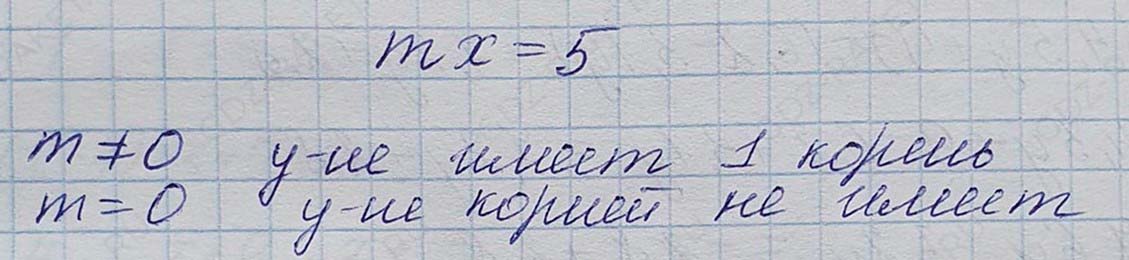 mx = 5
m ≠ 0 у-ие имеет 1 корень
m = 0 у-ие корней не имеет